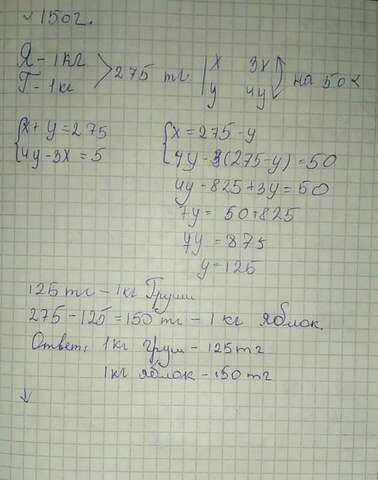 √1502.
Я-1кг
Г-1кг > 275 тг. | x 3x
y 4y на 50<
{x+y=275
4y-3x=5
{x=275-y
4y-3(275-y)=50
4y-825+3y=50
7y=50+825
7y=875
y=125
125тг-1кг Груши
275-125=150тг-1кг яблок.
Ответ: 1кг груш-125тг
1кг яблок-150тг